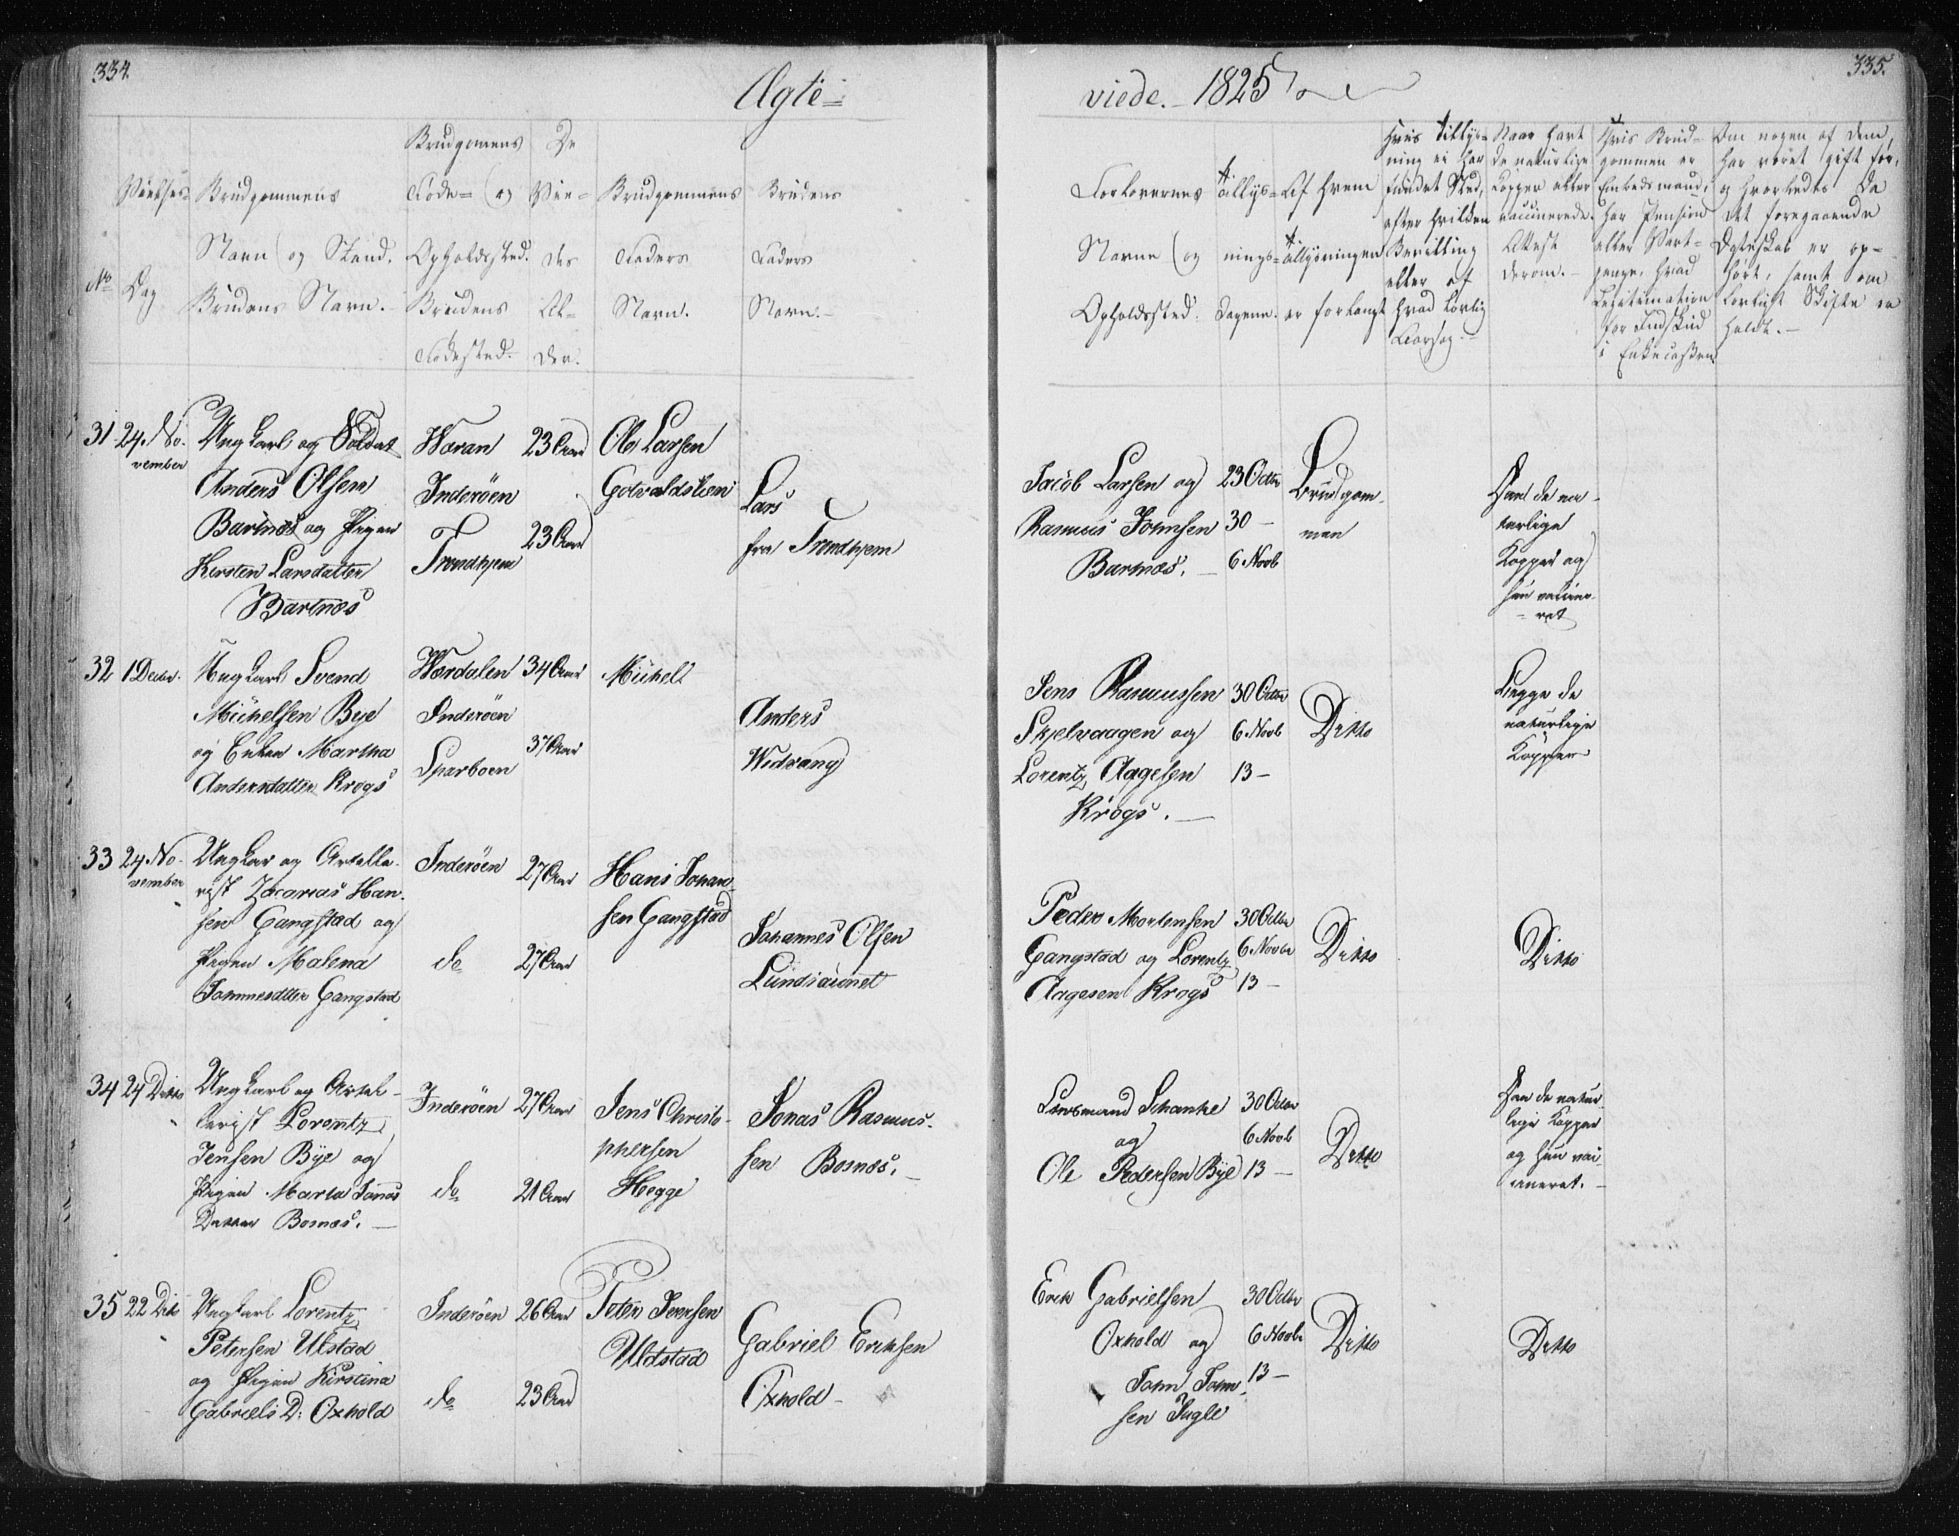 334.
Ægte=
viede. 1825
335.
No
Vielses-
Dag
Brudgommens
Navn og Stand.
Brudens Navn.
Brudgomens
Føde- og
Opholdssted.
Brudens
Fødested.
De
Vie-
des
Al-
der.
Brudgommens
Faders
Navn.
Brudens
Faders
Navn.
Forlovernes
Navne og
Opholdssted.
Tillys-
nings-
Dagene.
Af hvem
Tillysningen
er forlangt
Hvis Tillys-
ning ei har
fundet Sted,
efter hvilken
Bevilling
eller af
hvad lovlig
Aarsag.
Naar havt
de naturlige
Kopper eller
vaccinerede.
Attest
derom.
Hvis Brud-
gommen er
Embedsmand,
har Pension
eller Vart-
penge, hvad
Legitimation
for Indskud
i Enkecassen
Om nogen af dem,
har været gift før,
og hvorledes da
det foregaaende
Ægteskab er op-
hørt, samt om
lovligt Skifte er
holdt.
31 24. No-
vember
Ungkarl og Soldat
Anders Olsen
Bartnæs og Pigen
Kirsten Larsdatter
Bartnæs
Waran
Inderöen
Trondhjem
23 Aar
23 Aar
Ole Larsen
Gotvaldslien
Lars
fra Trondhjem
Jacob Larsen og
Rasmus Johnsen
Bartnæs.
23 Octbr
30 —
6 Novb
Brudgom-
men
Han de na-
turlige
Kopper og
hun vaccine-
ret
32 1 Decbr.
Ungkarl Svend
Michelsen Bye
og Enken Martha
Andersdatter Krogs
Wærdalen
Inderöen
Sparboen
34 Aar
37 Aar
Michel
Anders
Widvang
Jens Rasmussen
Skjelvaagen og
Lorentz Aagesen
Krogs.
30 Octbr
6 Novb
13 —
Ditto
Begge de
naturlige
Kopper
33 24 No-
vember
Ungkar og Artelle-
rist Zacarias Han-
sen Gangstad og
Pigen Malena
Johannesdtter Gangstad
Inderöen
do
27 Aar
27 Aar
Hans Johan-
sen Gangstad
Johannes Olsen
Lundsaunet
Peder Mortensen
Gangstad og Lorentz
Aagesen Krogs
30 Octbr
6 Novbr
13 —
Ditto
Ditto
34 24 Ditto
Ungkarl og Artel-
lerist Lorentz
Jensen Bye og
Pigen Marta Jonas
Datter Bosnæs.
Inderöen
do
27 Aar
21 Aar
Jens Christo-
phersen
Hegge
Jonas Rasmus-
sen Bosnæs.
Lensmand Schanke
og
Ole Pedersen Bye
30 Octbr
6 Novb
13 —
Ditto
Han de natur-
lige Kopper
og hun vac-
cineret.
35 22 Dito
Ungkarl Lorentz
Petersen Ulstad
og Pigen Kirstina
Gabriels D: Oxhold
Inderöen
do
26 Aar
23 Aar
Peter Iversen
Uldstad
Gabriel Eriksen
Oxhold
Erik Gabrielsen
Oxhold og
John John-
sen Fugle
30 Octbr
6 Novbr
13 —
Ditto
Ditto